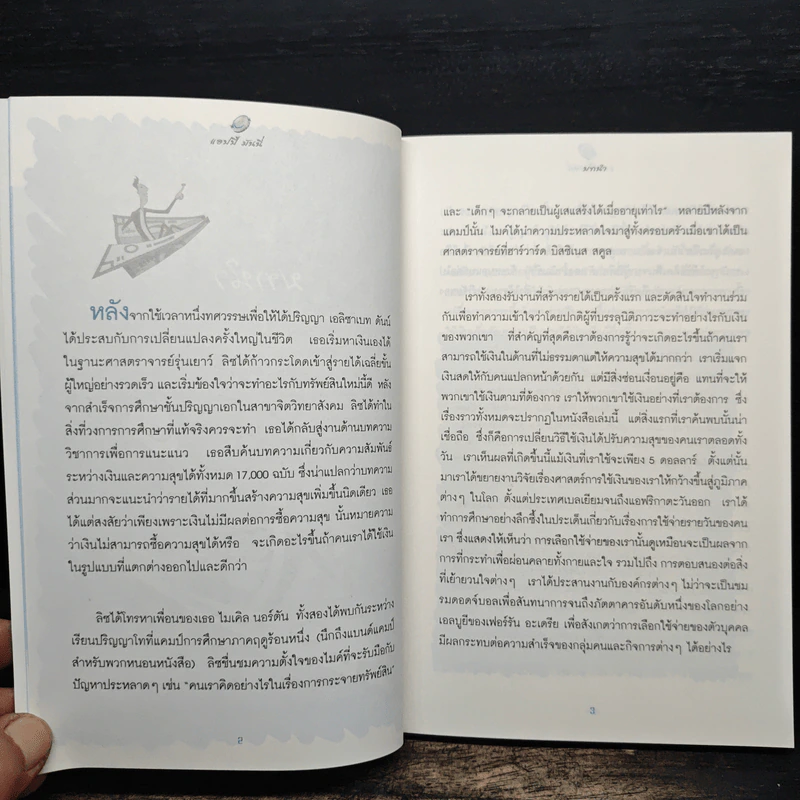 แฮปปี้ มันนี่
หลังจากใช้เวลาหนึ่งทศวรรษเพื่อให้ได้ปริญญา เอลิซาเบท ดันน์
ได้ประสบกับการเปลี่ยนแปลงครั้งใหญ่ในชีวิต เธอเริ่มหาเงินเองได้
ในฐานะศาสตราจารย์รุ่นเยาว์ ลิซได้ก้าวกระโดดเข้าสู่รายได้เฉลี่ยขั้น
ผู้ใหญ่อย่างรวดเร็ว และเริ่มข้องใจว่าจะทำอะไรกับทรัพย์สินใหม่นี้ดี หลัง
จากสำเร็จการศึกษาชั้นปริญญาเอกในสาขาจิตวิทยาสังคม ลิซได้ทำใน
สิ่งที่วงการการศึกษาที่แท้จริงควรจะทำ เธอได้กลับสู่งานด้านบทความ
วิชาการเพื่อการแนะแนว เธอสืบค้นบทความเกี่ยวกับความสัมพันธ์
ระหว่างเงินและความสุขได้ทั้งหมด 17,000 ฉบับ ซึ่งน่าแปลกว่าบทความ
ส่วนมากจะแนะนำว่ารายได้ที่มากขึ้นสร้างความสุขเพิ่มขึ้นนิดเดียว เธอ
ได้แต่สงสัยว่าเพียงเพราะเงินไม่มีผลต่อการซื้อความสุข นั้นหมายความ
ว่าเงินไม่สามารถซื้อความสุขได้หรือ จะเกิดอะไรขึ้นถ้าคนเราได้ใช้เงิน
ในรูปแบบที่แตกต่างออกไปและดีกว่า
ลิซได้โทรหาเพื่อนของเธอ ไมเคิล นอร์ตัน ทั้งสองได้พบกันระหว่าง
เรียนปริญญาโทที่แคมป์การศึกษาภาคฤดูร้อนหนึ่ง (นึกถึงแบนด์แคมป์
สำหรับพวกหนอนหนังสือ) ลิซชื่นชมความตั้งใจของไมค์ที่จะรับมือกับ
ปัญหาประหลาดๆ เช่น “คนเราคิดอย่างไรในเรื่องการกระจายทรัพย์สิน”
2
บทนำ
และ “เด็กๆ จะกลายเป็นผู้เสแสร้งได้เมื่ออายุเท่าไร” หลายปีหลังจาก
แคมป์นั้น ไมค์ได้นำความประหลาดใจมาสู่ทั้งครอบครัวเมื่อเขาได้เป็น
ศาสตราจารย์ที่ฮาร์วาร์ด บิสซิเนส สคูล
เราทั้งสองรับงานที่สร้างรายได้เป็นครั้งแรก และตัดสินใจทำงานร่วม
กันเพื่อทำความเข้าใจว่าโดยปกติผู้ที่บรรลุนิติภาวะจะทำอย่างไรกับเงิน
ของพวกเขา ที่สำคัญที่สุดคือเราต้องการรู้ว่าจะเกิดอะไรขึ้นถ้าคนเรา
สามารถใช้เงินในด้านที่ไม่ธรรมดาแต่ให้ความสุขได้มากกว่า เราเริ่มแจก
เงินสดให้กับคนแปลกหน้าด้วยกัน แต่มีสิ่งซ่อนเงื่อนอยู่คือ แทนที่จะให้
พวกเขาใช้เงินตามที่ต้องการ เราให้พวกเขาใช้เงินอย่างที่เราต้องการ ซึ่ง
เรื่องราวทั้งหมดจะปรากฏในหนังสือเล่มนี้ แต่สิ่งแรกที่เราค้นพบนั้นน่า
เชื่อถือ ซึ่งก็คือการเปลี่ยนวิธีใช้เงินได้ปรับความสุขของคนเราตลอดทั้ง
วัน เราเห็นผลที่เกิดขึ้นนี้แม้เงินที่เราใช้จะเพียง 5 ดอลลาร์ ตั้งแต่นั้น
มาเราได้ขยายงานวิจัยเรื่องศาสตร์การใช้เงินของเราให้กว้างขึ้นสู่ภูมิภาค
ต่างๆ ในโลก ตั้งแต่ประเทศเบลเยียมจนถึงแอฟริกาตะวันออก เราได้
ทำการศึกษาอย่างลึกซึ้งในประเด็นเกี่ยวกับเรื่องการใช้จ่ายรายวันของคน
เรา ซึ่งแสดงให้เห็นว่า การเลือกใช้จ่ายของเรานั้นดูเหมือนจะเป็นผลจาก
การที่กระทำเพื่อผ่อนคลายทั้งกายและใจ รวมไปถึง การตอบสนองต่อสิ่ง
ที่เย้ายวนใจต่างๆ เราได้ประสานงานกับองค์กรต่างๆ ไม่ว่าจะเป็นชม
รมดอดจ์บอลเพื่อสันทนาการจนถึงภัตตาคารอันดับหนึ่งของโลกอย่าง
เอลบูยีของเฟอร์รัน อะเดรีย เพื่อสังเกตว่าการเลือกใช้จ่ายของตัวบุคคล
มีผลกระทบต่อความสำเร็จของกลุ่มคนและกิจการต่างๆ ได้อย่างไร
3